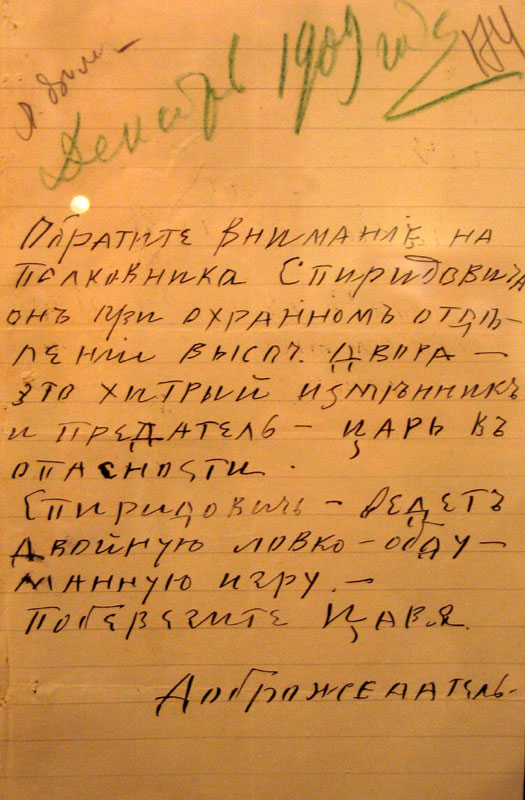 Декабрь 1909 года
Обратите вниманіе на
Полковника Спиридовича
онъ при охранномъ отдѣ-
леніи высоч. двора —
это хитрый измѣнникъ
и предатель — царь въ
опасности.
Спиридовичь — ведетъ
двойную ловко-обду-
манную игру. —
Поберегите Царя.
Доброжелатель.